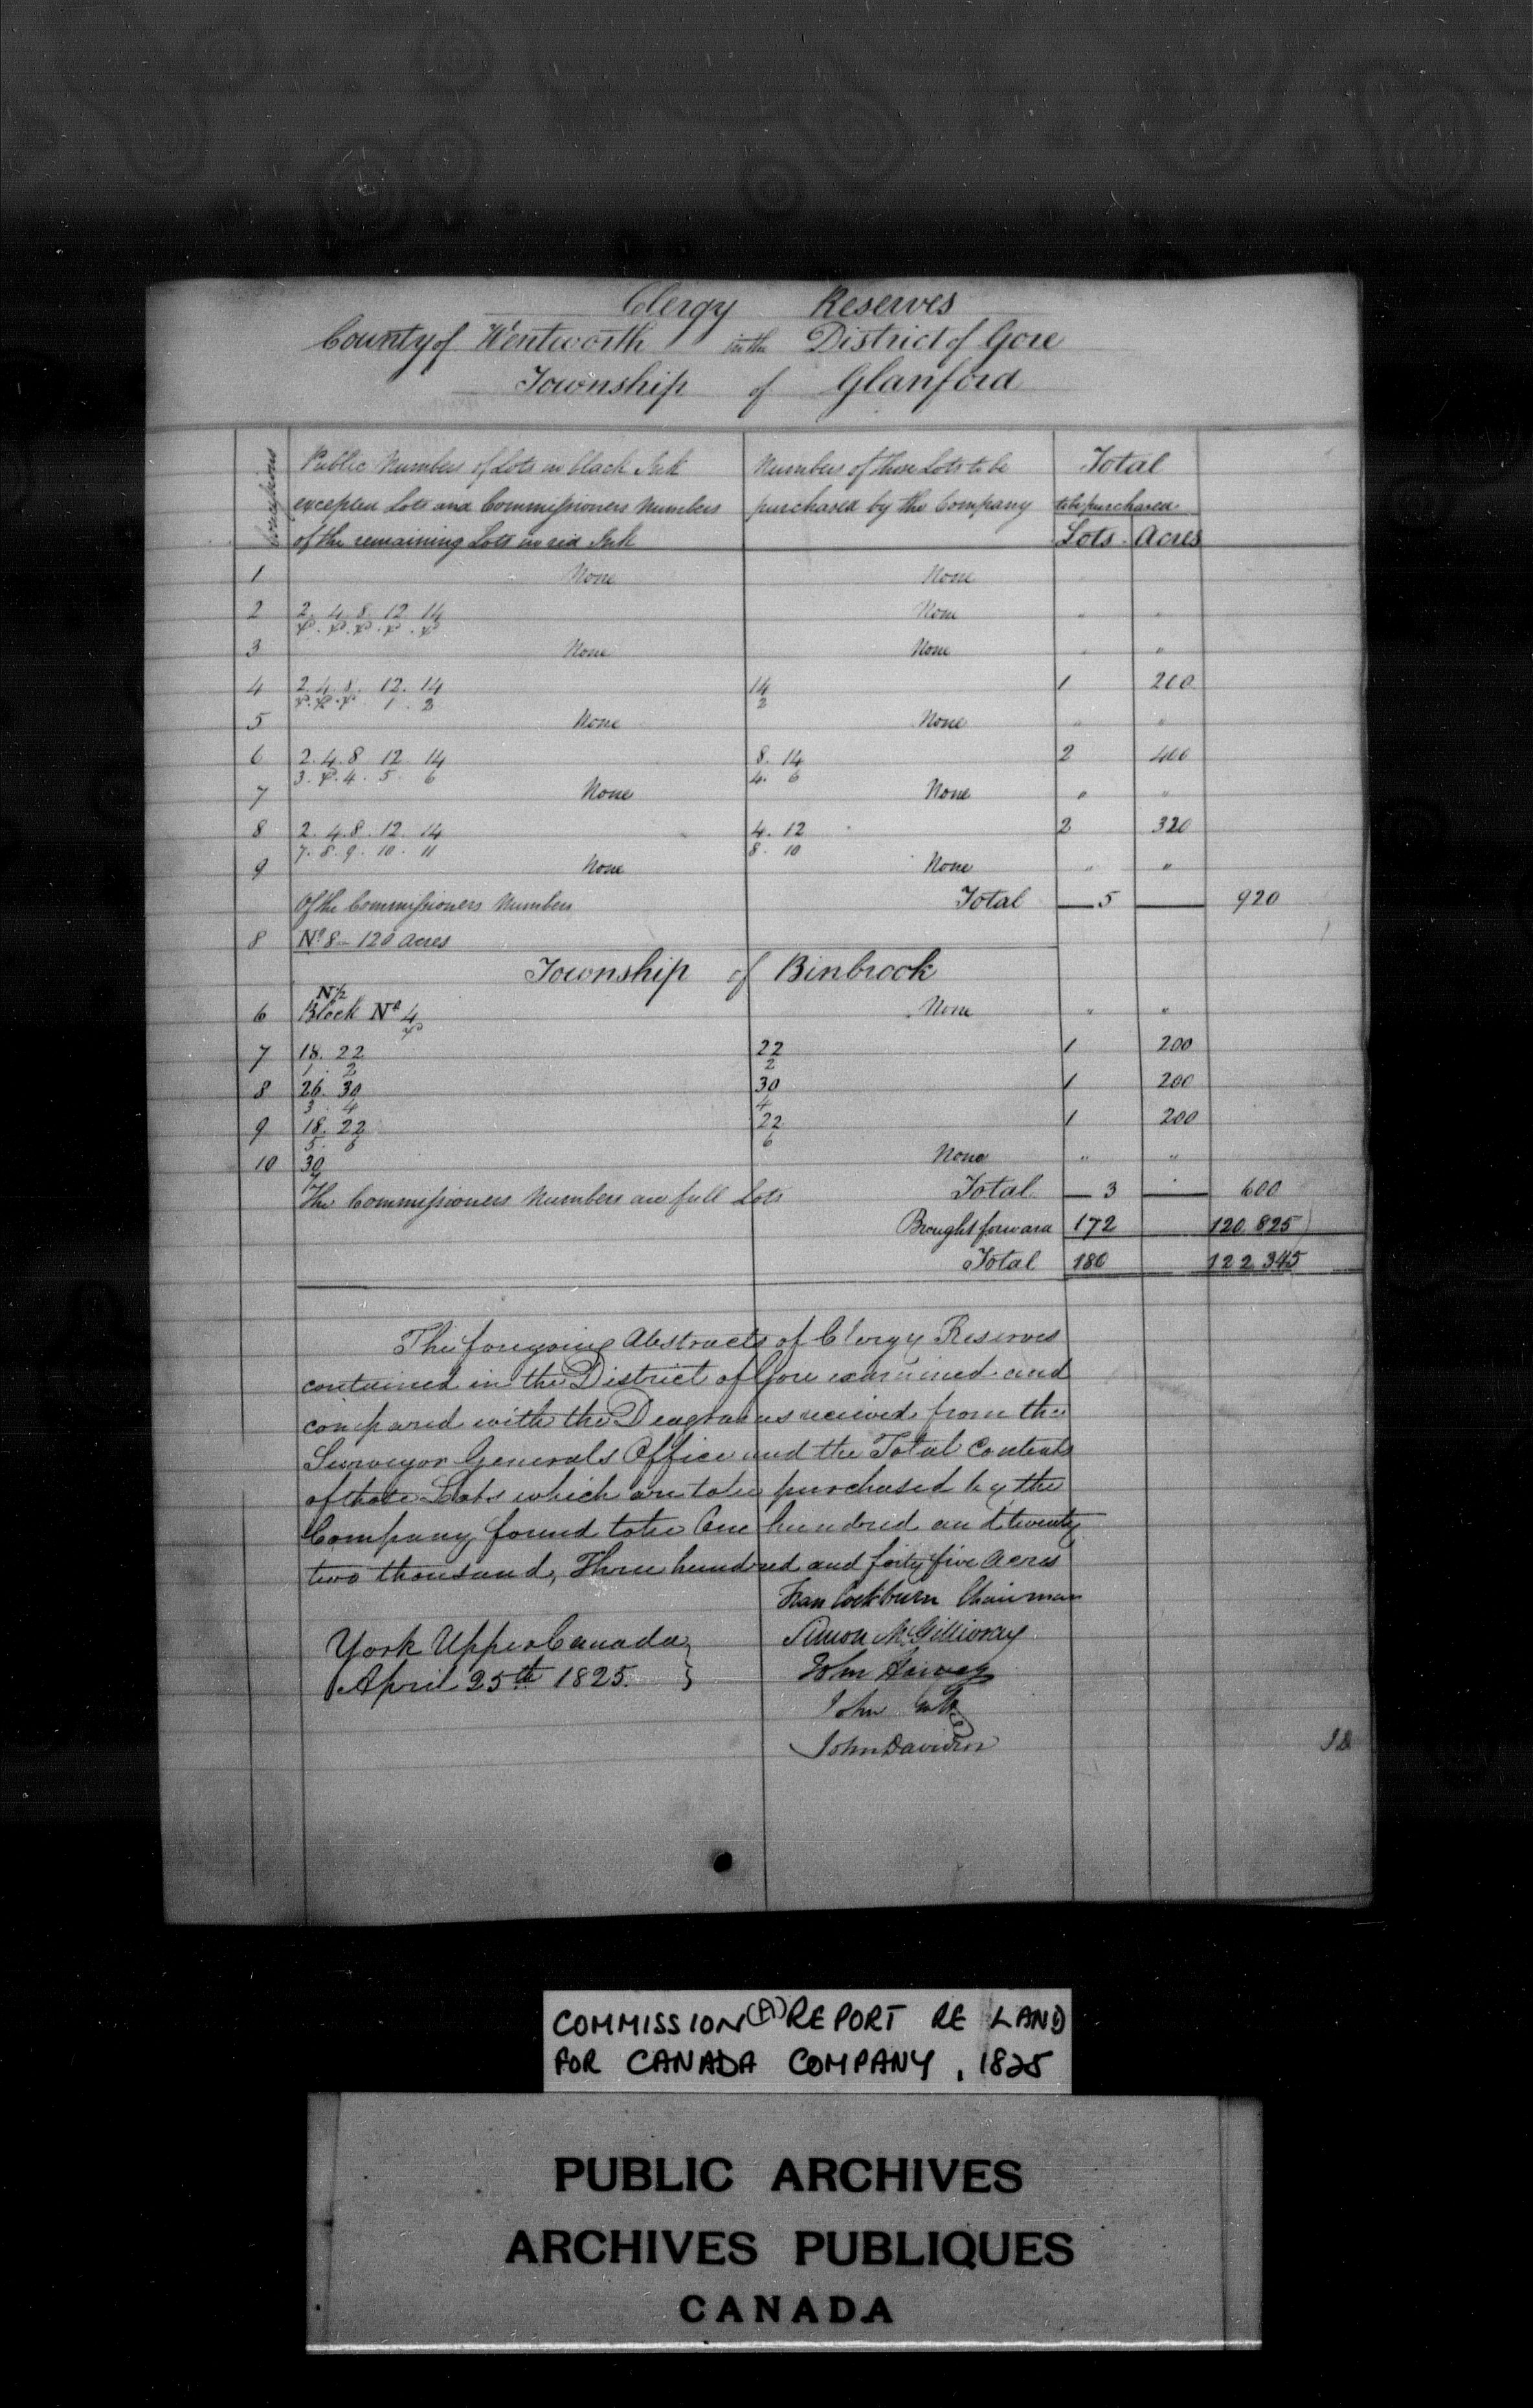 Clergy Reserves
County of Wentworth in the District of Gore
Township of Glanford
Concessions
Public Numbers of Lots in black Ink
excepted Lots and Commissioners Numbers
of the remaining Lots in red Ink
Numbers of those Lots to be
purchased by the Company
Total
to be purchased
Lots Acres
1 None None
2 2. 4. 8. 12 14 None " "
3 None None " "
4 2. 4. 8. 12. 14 14 1 200
1. 2 2
5 None None " "
6 2. 4. 8 12 14 8. 14 2 400
3. 4. 5. 6 4. 6
7 None None " "
8 2. 4. 8. 12. 14 4. 12 2 320
7. 8. 9. 10. 11 8. 10
9 None None " "
Of the Commissioners Numbers Total 5 920
8 No 8 - 120 acres
Township of Binbrook
N½
6 Block No 4 None " "
7 18. 22 22 1 200
1. 2 2
8 26. 30 30 1 200
3. 4 4
9 18. 22 22 1 200
5. 6 6
10 30 None " "
7
The Commissioners Numbers are full Lots Total 3 " 600
Brought forward 172 120.825
Total 180 122.345
The foregoing Abstracts of Clergy Reserves
contained in the District of Gore examined and
compared with the Diagrams received from the
Surveyor Generals Office and the Total Contents
of those Lots which are to be purchased by the
Company found to be One hundred and twenty
two thousand, Three hundred and forty five Acres
Fran Cockburn Chairman
York Upper Canada } Simon McGillivray
April 25th 1825. John Harvey
John Galt
John Davidson
COMMISSION (A) REPORT RE LAND
FOR CANADA COMPANY, 1825
PUBLIC ARCHIVES
ARCHIVES PUBLIQUES
CANADA